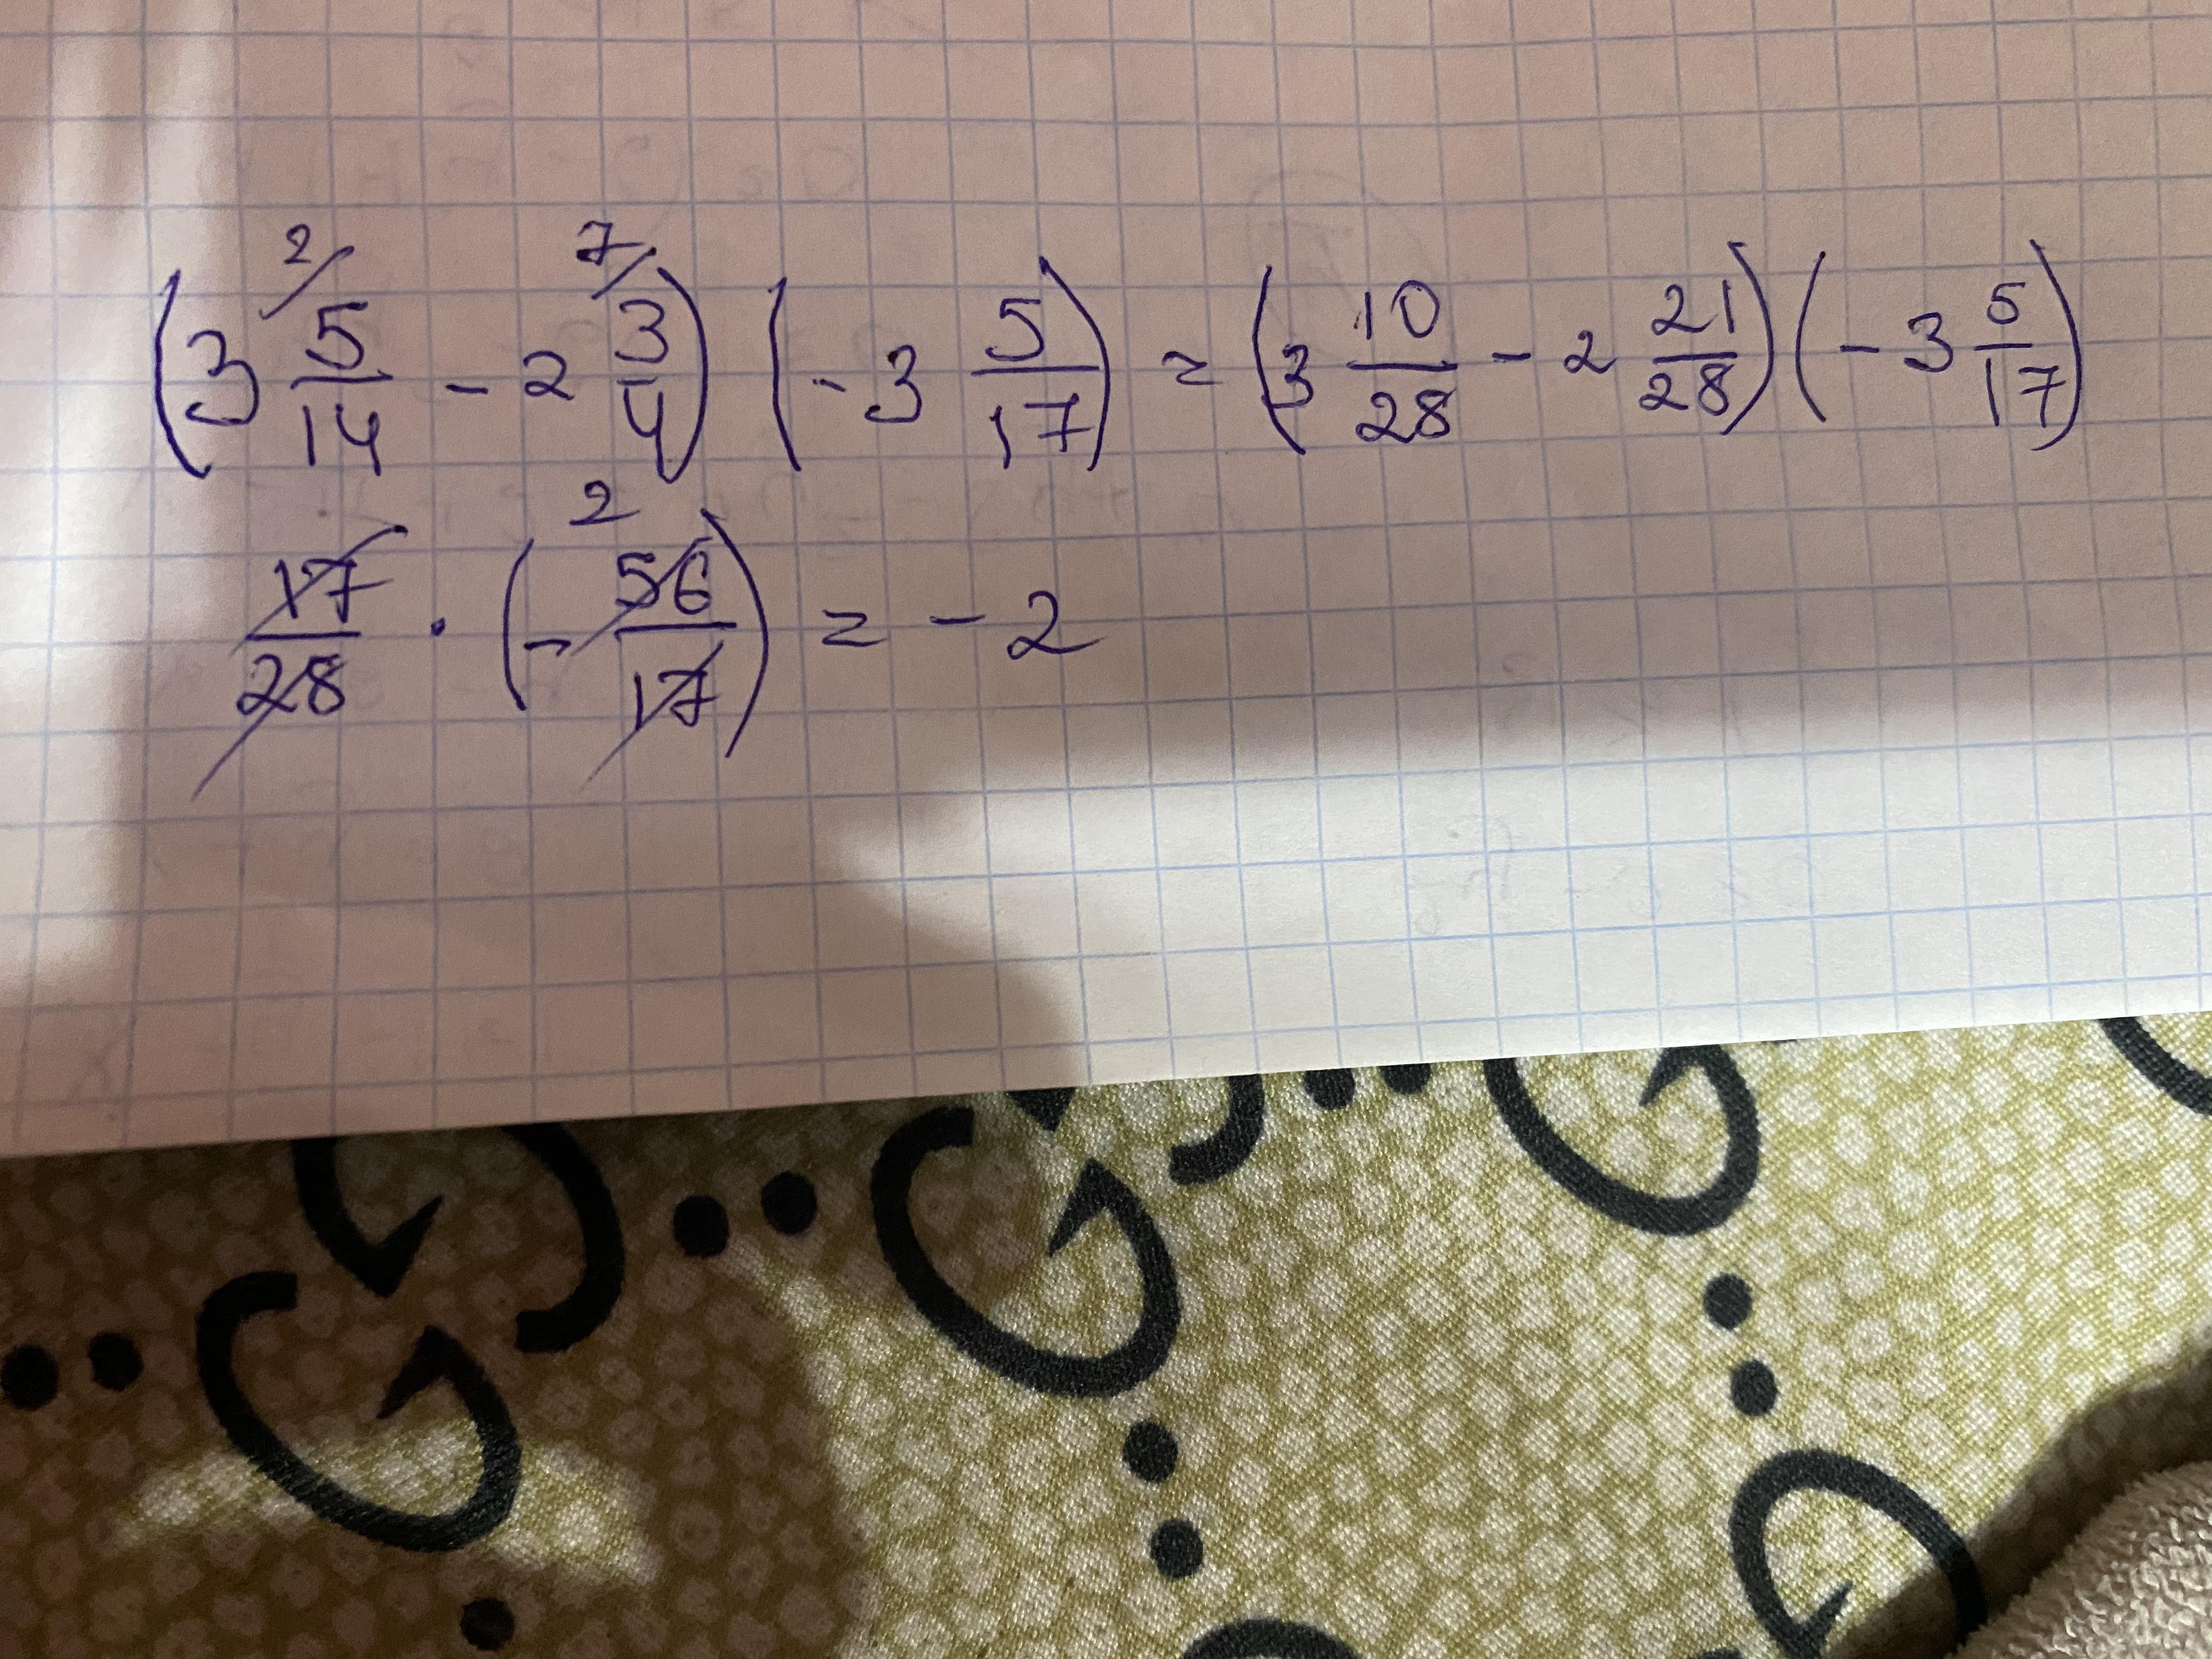 (3 2/ 5/14 - 2 7/ 3/4) (-3 5/17) = (3 10/28 - 2 21/28) (-3 5/17)
17/28 · (- 2 56/17) = -2